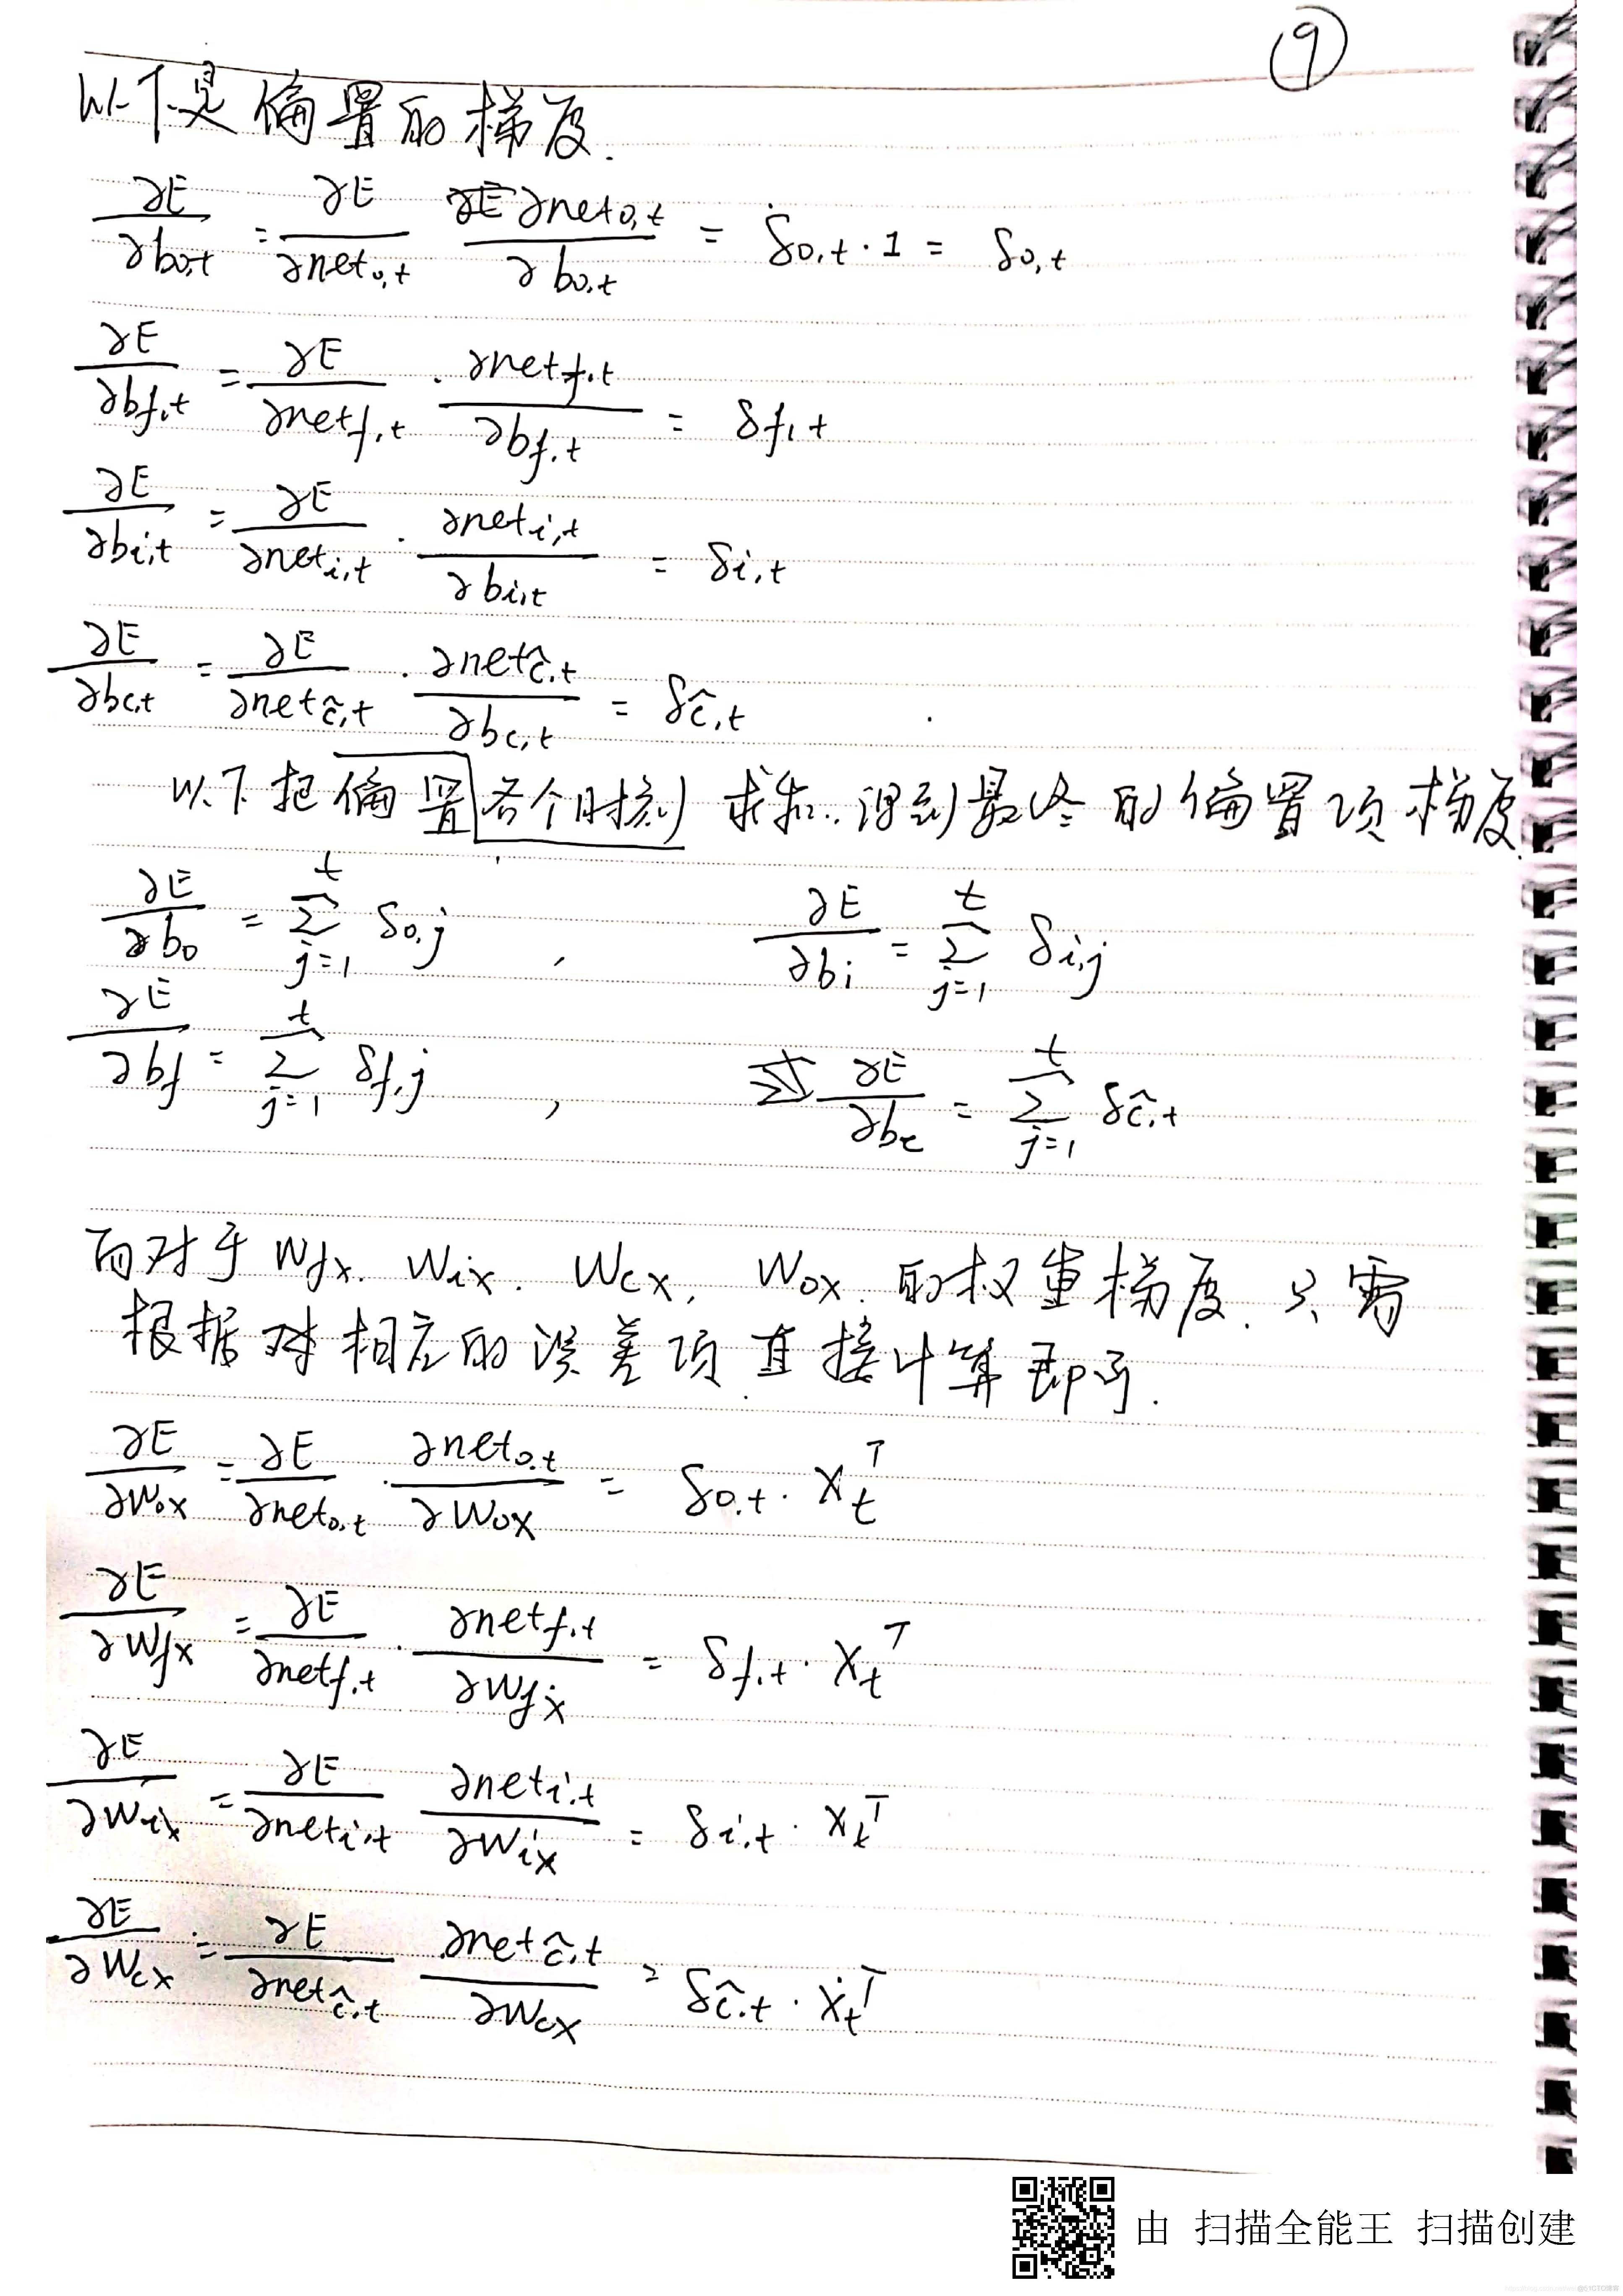 ⑨
以下是偏置的梯度.
∂E/∂bo,t = ∂E/∂neto,t ∂neto,t/∂bo,t = δo,t · 1 = δo,t
∂E/∂bf,t = ∂E/∂netf,t · ∂netf,t/∂bf,t = δf,t
∂E/∂bi,t = ∂E/∂neti,t · ∂neti,t/∂bi,t = δi,t
∂E/∂bc,t = ∂E/∂netĉ,t · ∂netĉ,t/∂bc,t = δĉ,t
以下把偏置各个时刻求和..得到最终的偏置项梯度.
∂E/∂bo = Σ_{j=1}^{t} δo,j , ∂E/∂bi = Σ_{j=1}^{t} δi,j
∂E/∂bf = Σ_{j=1}^{t} δf,j , ∂E/∂bc = Σ_{j=1}^{t} δĉ,t
而对于 Wfx. Wix. Wcx, Wox. 的权重梯度. 只需
根据对相应的误差项直接计算即可.
∂E/∂Wox = ∂E/∂neto,t · ∂neto,t/∂Wox = δo,t · Xt^T
∂E/∂Wfx = ∂E/∂netf,t · ∂netf,t/∂Wfx = δf,t · Xt^T
∂E/∂Wix = ∂E/∂neti,t ∂neti,t/∂Wix = δi,t · Xt^T
∂E/∂Wcx = ∂E/∂netĉ,t ∂netĉ,t/∂Wcx = δĉ,t · Xt^T
由 扫描全能王 扫描创建